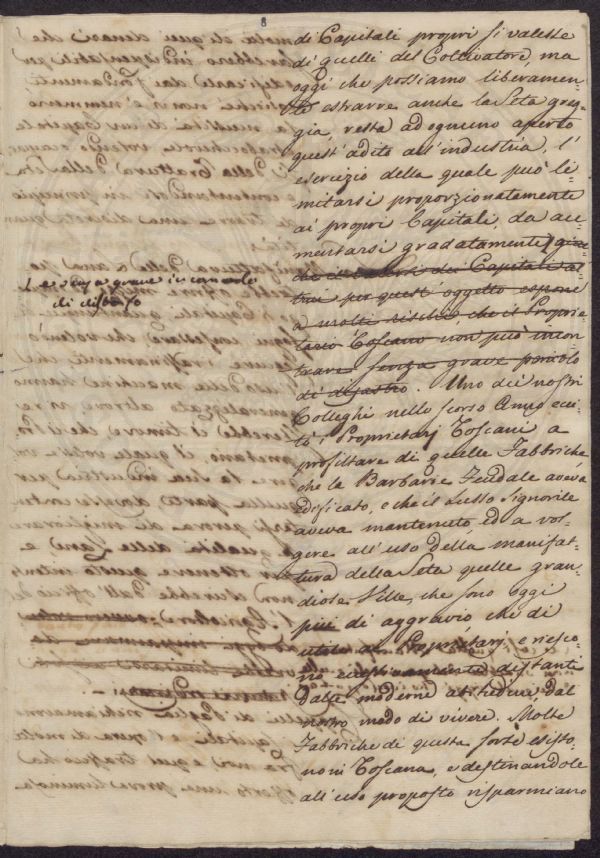 8
di Capitali propri si valeste
di quelli del Coltivatore, ma
oggi che possiamo liberamen-
te estrarre anche la Seta greg-
gia, resta ad ognuno aperto
quest'adito all'industria, l'
esercizio della quale può li-
mitarsi proporzionatamente
ai propri Capitali, da au-
mentarsi gradatamente
dei Capitali al-
trui per quest'oggetto espone
a molti rischi, che il Proprie-
tario Toscano non può incon-
trare senza grave pericolo
di disastro. Uno dei nostri
Colleghi nello scorso Anno ecci-
tò i Proprietarj Toscani a
profittare di quelle Fabbriche,
che la Barbarie Feudale aveva
edificato, e che il lusso Signorile
aveva mantenuto, ed a vol-
gere all'uso della manifat-
tura della Seta quelle gran-
diose Ville, che sono oggi
più di aggravio che di
utile ai Proprietarj e riesco-
no distanti
dalle moderne abitudini dal
nostro modo di vivere. Molte
Fabbriche di questa sorte esisto-
no in Toscana, e destinandole
all'uso proposto risparmiano
e senza grave incomodo
di disborso